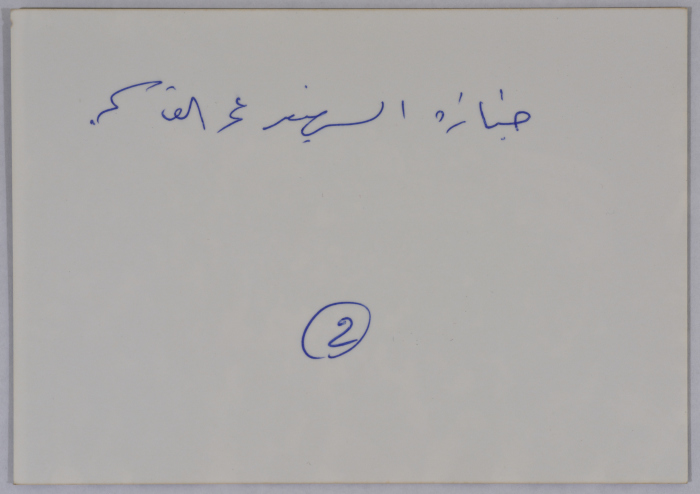 جنازة الشهيد عمر القاسم
2